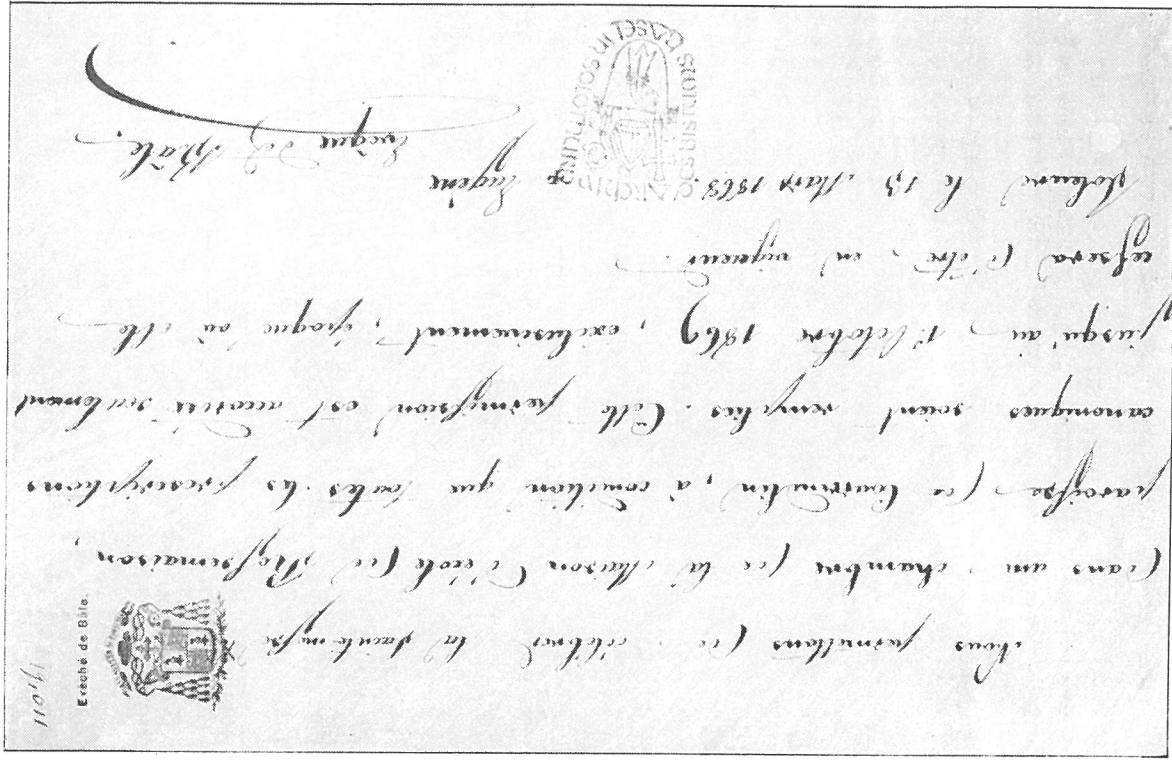 Evêché de Bâle.
Nous permettons de célébrer la Sainte Messe
dans une chambre de la Maison d'école de Rossemaison,
paroisse de Courrendlin, à condition que toutes les prescriptions
canoniques soient remplies. Cette permission est accordée seulement
jusqu'au 1er Octobre 1869 exclusivement, époque où elle
cessera d'être en vigueur.
Soleure le 13 Mars 1868. + Eugène
Evêque de Bâle.